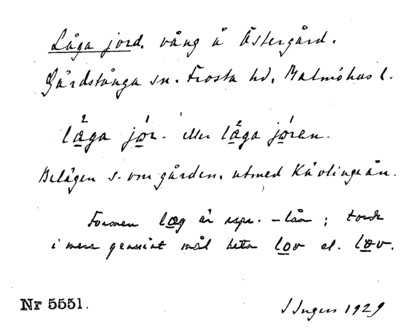 Låga jord. vång å Östergård.
Gårdstånga sn. Frosta hd. Malmöhus l.
låga jor. eller låga joran.
Belägen s. om gården, utmed Kävlingeån.
Formen læg är rspr. -lån; torde
i mera genuint mål heta lov el. læv.
Nr 5551.
Ingers 1929